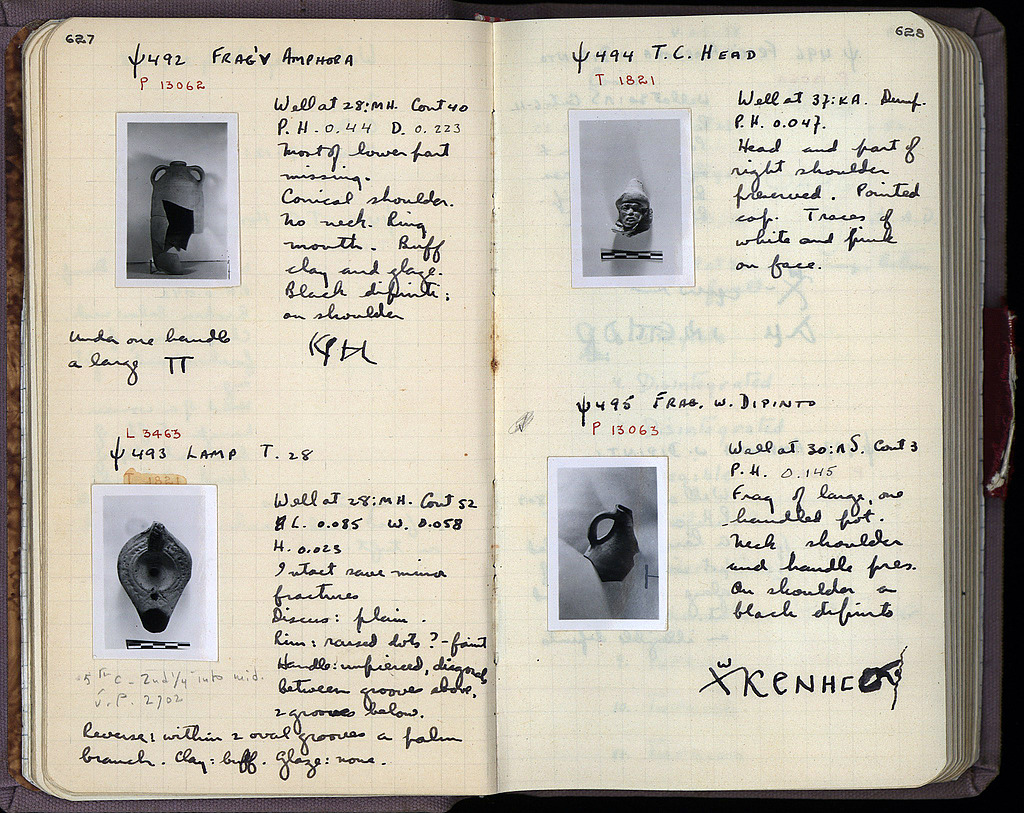 627
Ψ492 FRAG'Y AMPHORA
P 13062
Well at 28:MH. Cont 40
P.H. 0.44 D. 0.223
Most of lower part
missing.
Conical shoulder.
No neck. Ring
mouth. Buff
clay and glaze.
Black dipinti:
on shoulder
under one handle
a large Π
L 3463
Ψ493 LAMP T. 28
T 1821
Well at 28:MH. Cont 52
L. 0.085 W. 0.058
H. 0.023
Intact save minor
fractures
Discus: plain.
Rim: raised dots?-faint
Handle: unpierced, diagonal
between grooves above,
2 grooves below.
5th c - 2nd 1/4 into mid.
v. P. 2702
Reverse: within 2 oval grooves a palm
branch. Clay: buff. Glaze: none.
628
Ψ494 T.C. HEAD
T 1821
Well at 37:ΚΑ. Dump.
P.H. 0.047.
Head and part of
right shoulder
preserved. Pointed
cap. Traces of
white and pink
on face.
Ψ495 FRAG. W. DIPINTO
P 13063
Well at 30:ΛS. Cont 3
P.H. 0.145
Frag of large, one
handled pot.
Neck shoulder
and handle pres.
On shoulder a
black dipinto